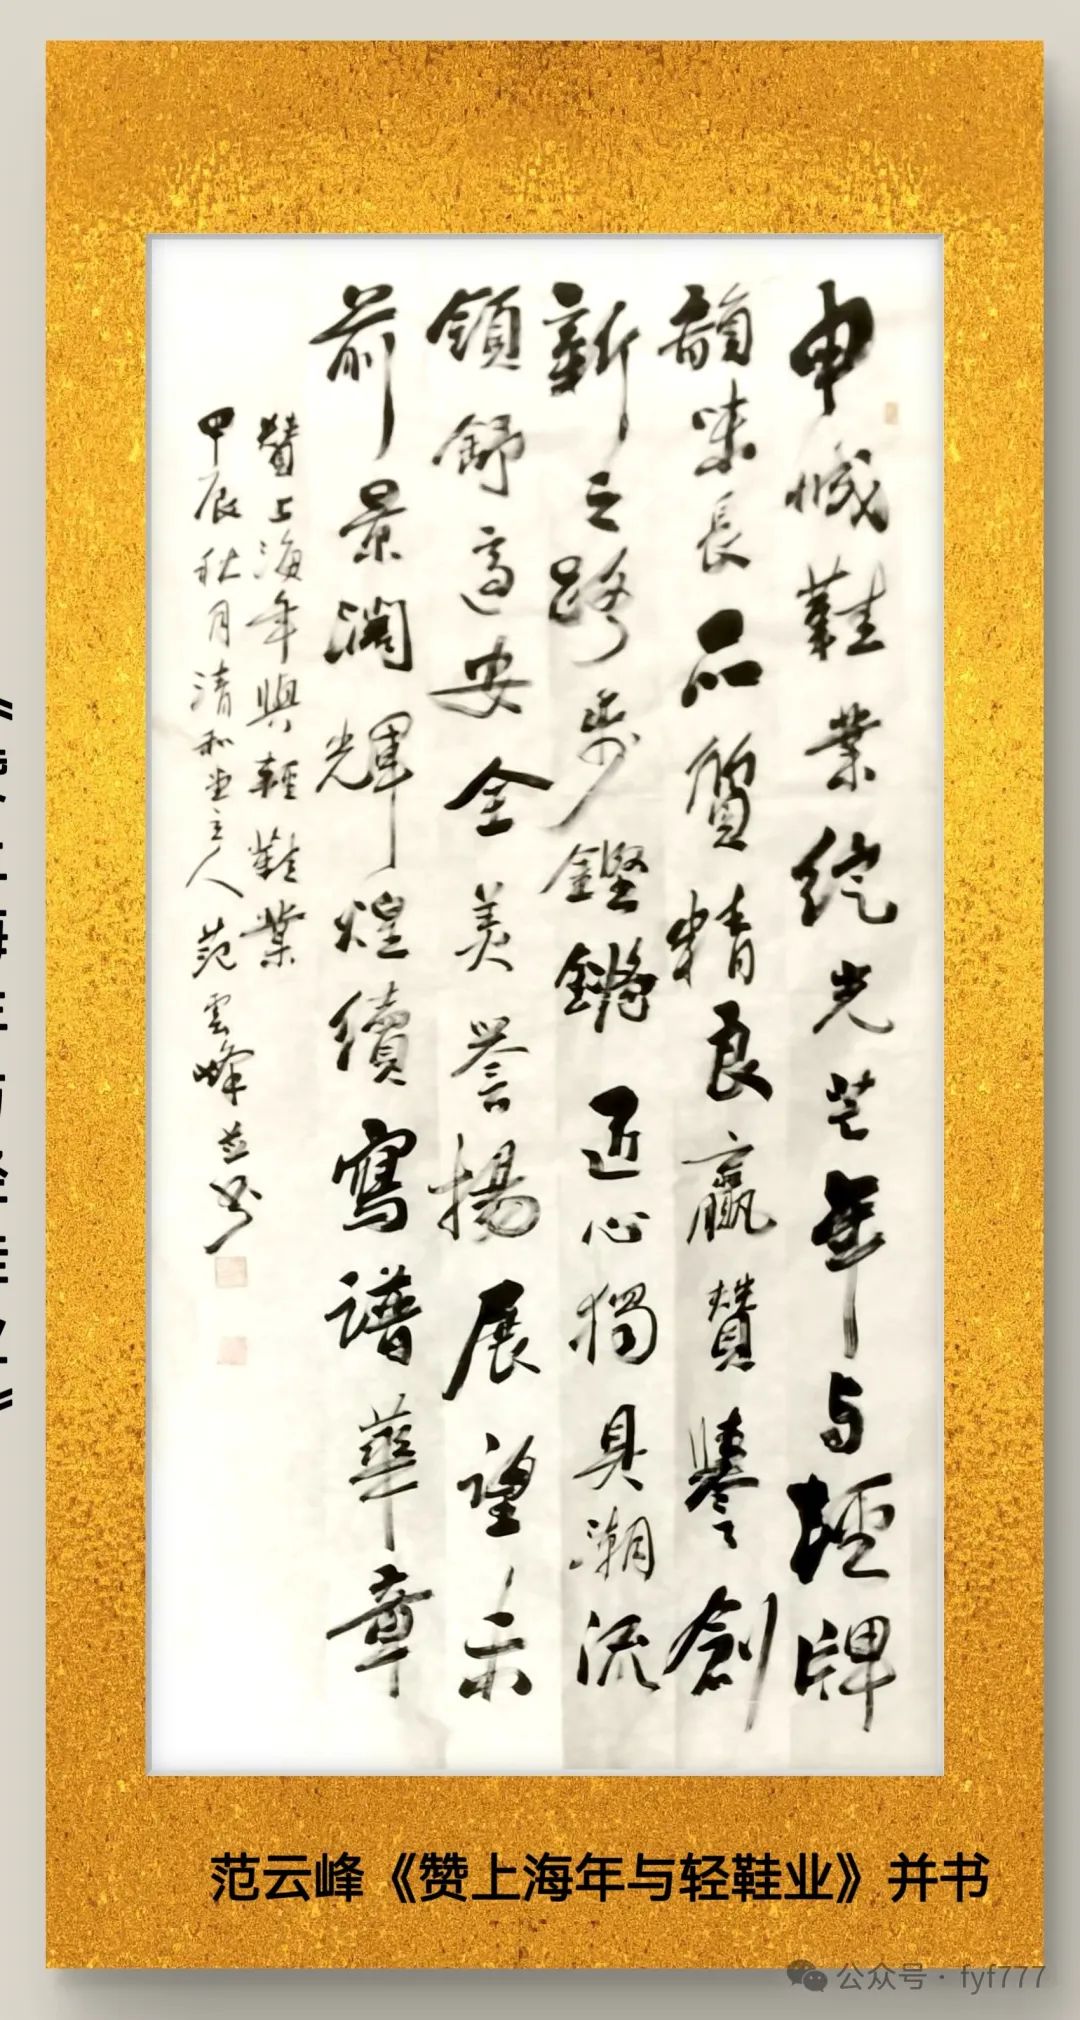 申城鞋業綻光芒年与軽牌
韻味長品質精良贏贊譽創
新之路步鏗鏘匠心獨具潮流
領舒適安全美誉揚展望未
前景濶輝煌續寫譜華章
贊上海年與輕鞋業
甲辰秋月清和堂主人范雲峰並书
范云峰《赞上海年与轻鞋业》并书
公众号·fyf777